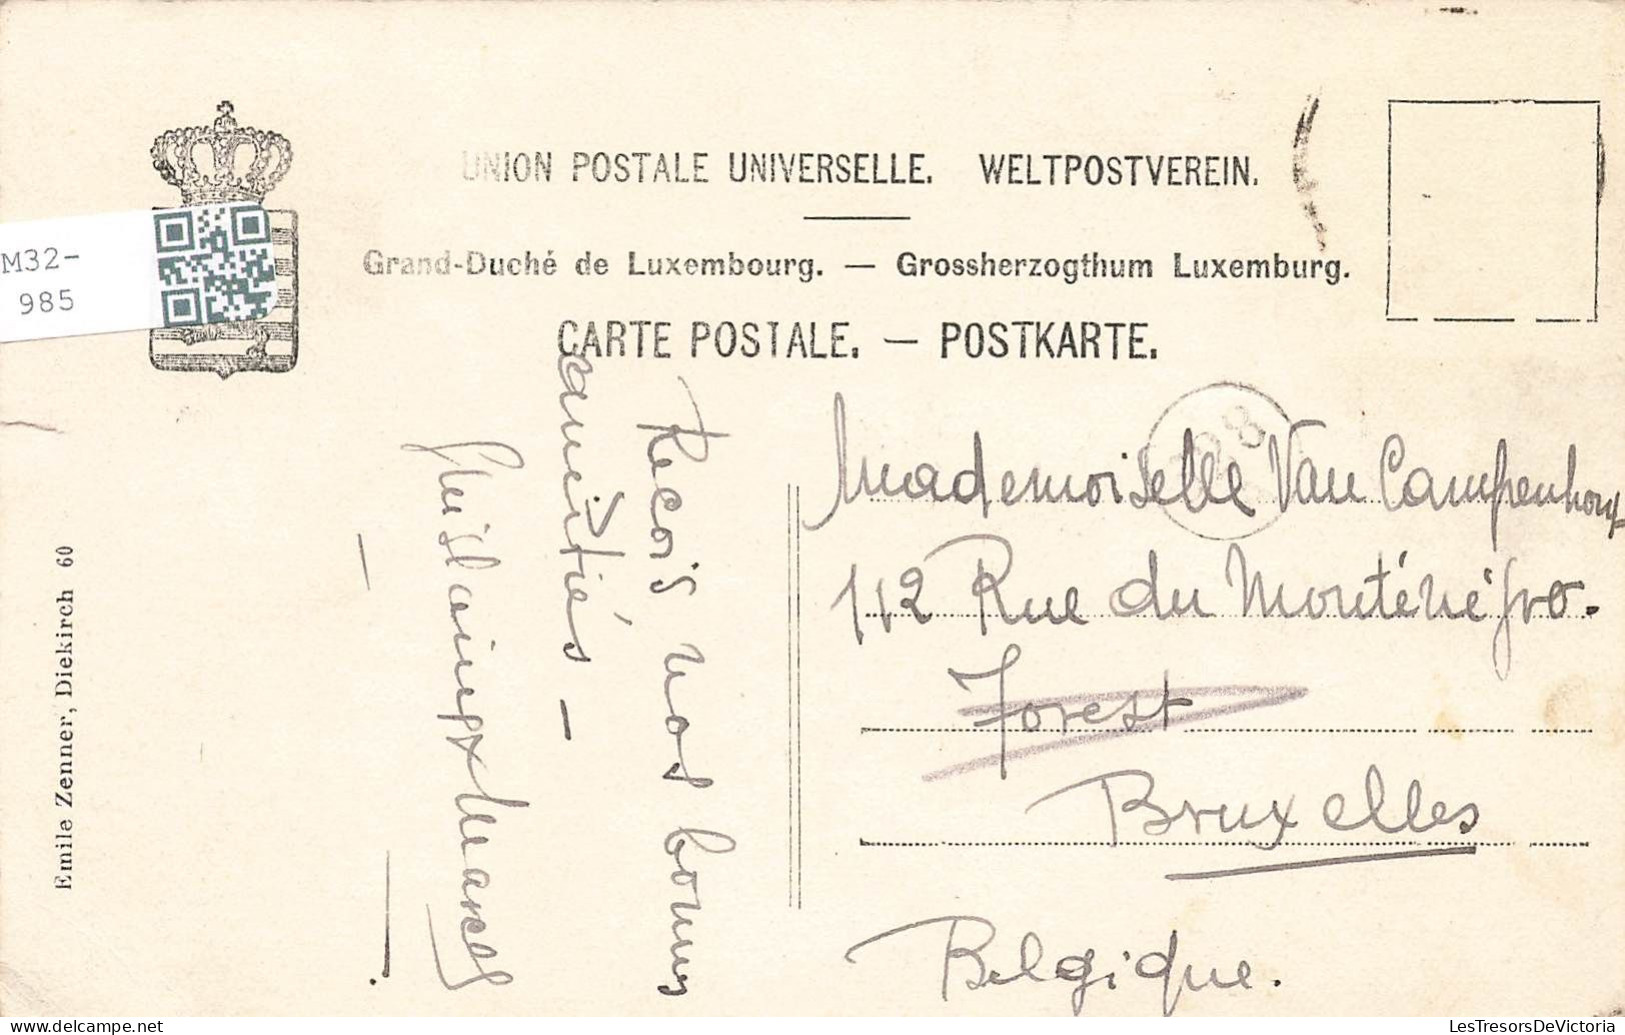 UNION POSTALE UNIVERSELLE. WELTPOSTVEREIN.
Grand-Duché de Luxembourg. — Grossherzogthum Luxemburg.
CARTE POSTALE. — POSTKARTE.
M32-
985
Emile Zenner, Diekirch 60
Reçois nos bonnes
amitiés —
Marcel
Mademoiselle Van Campenhout
112 Rue du Monténégro.
Forest
Bruxelles
Belgique.
LesTresorsDeVictoria